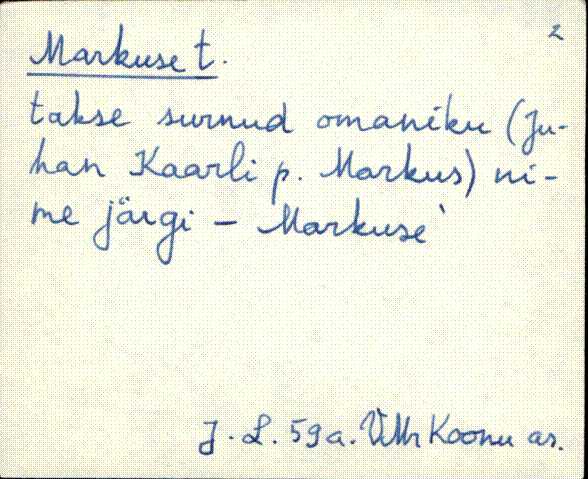 2
Markuse t.
takse surnud omaniku (Ju-
han Kaarli p. Markus) ni-
me järgi – Markuse`
J. L. 59 a. VMr Koonu as.